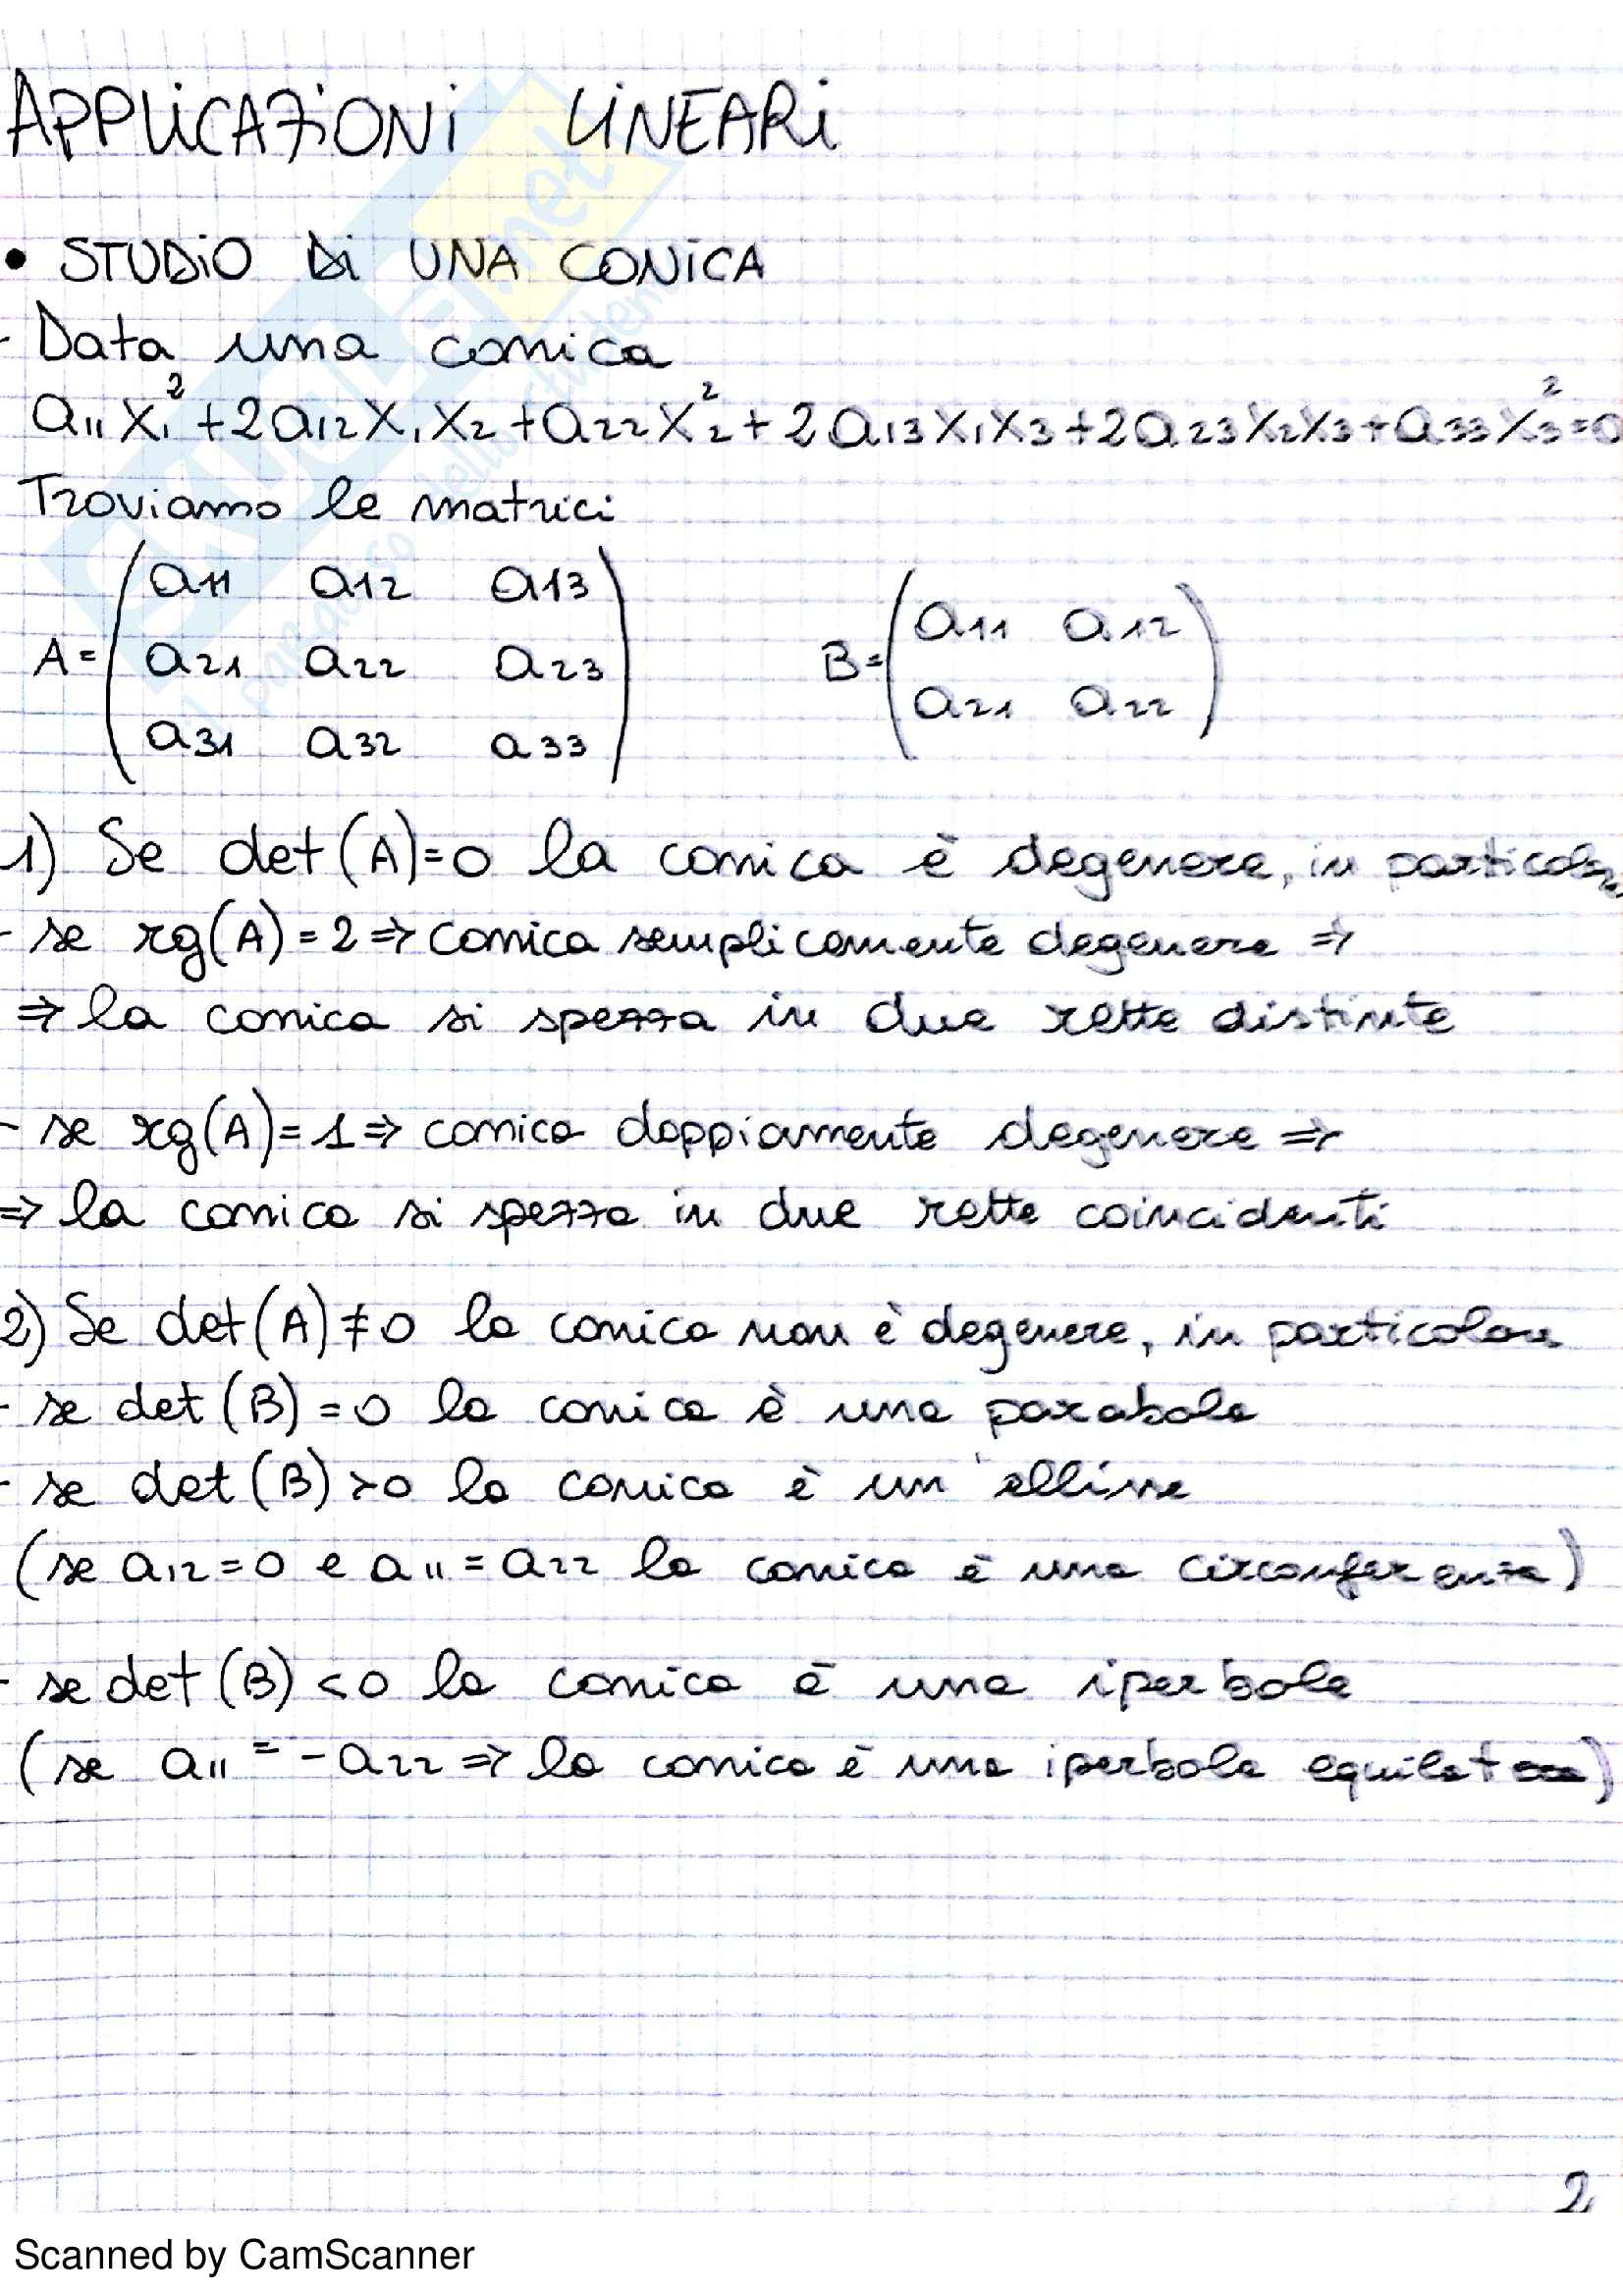 APPLICAZIONI LINEARI
• STUDIO DI UNA CONICA
- Data una conica
a₁₁x₁² + 2a₁₂x₁x₂ + a₂₂x₂² + 2a₁₃x₁x₃ + 2a₂₃x₂x₃ + a₃₃x₃² = 0
Troviamo le matrici
A = ( a₁₁ a₁₂ a₁₃ B = ( a₁₁ a₁₂
a₂₁ a₂₂ a₂₃ a₂₁ a₂₂ )
a₃₁ a₃₂ a₃₃ )
1) Se det(A)=0 la conica è degenere, in particolare
- se rg(A)=2 ⇒ conica semplicemente degenere ⇒
⇒ la conica si spezza in due rette distinte
- se rg(A)=1 ⇒ conica doppiamente degenere ⇒
⇒ la conica si spezza in due rette coincidenti
2) Se det(A)≠0 la conica non è degenere, in particolare
- se det(B)=0 la conica è una parabola
- se det(B)>0 la conica è un'ellisse
(se a₁₂=0 e a₁₁=a₂₂ la conica è una circonferenza)
- se det(B)<0 la conica è una iperbole
(se a₁₁ = -a₂₂ ⇒ la conica è una iperbole equilatera)
2
Scanned by CamScanner